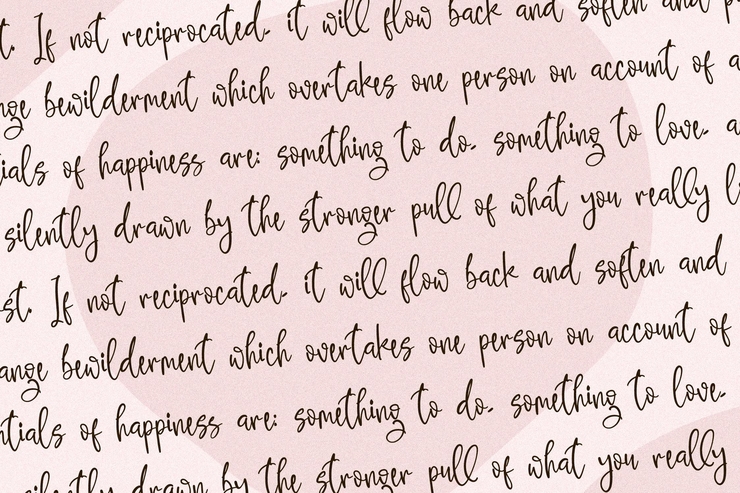 t. If not reciprocated, it will flow back and soften and p
nge bewilderment which overtakes one person on account of a
ials of happiness are: something to do, something to love, a
silently drawn by the stronger pull of what you really li
st. If not reciprocated, it will flow back and soften and
ange bewilderment which overtakes one person on account of
ntials of happiness are: something to do, something to love,
silently drawn by the stronger pull of what you really